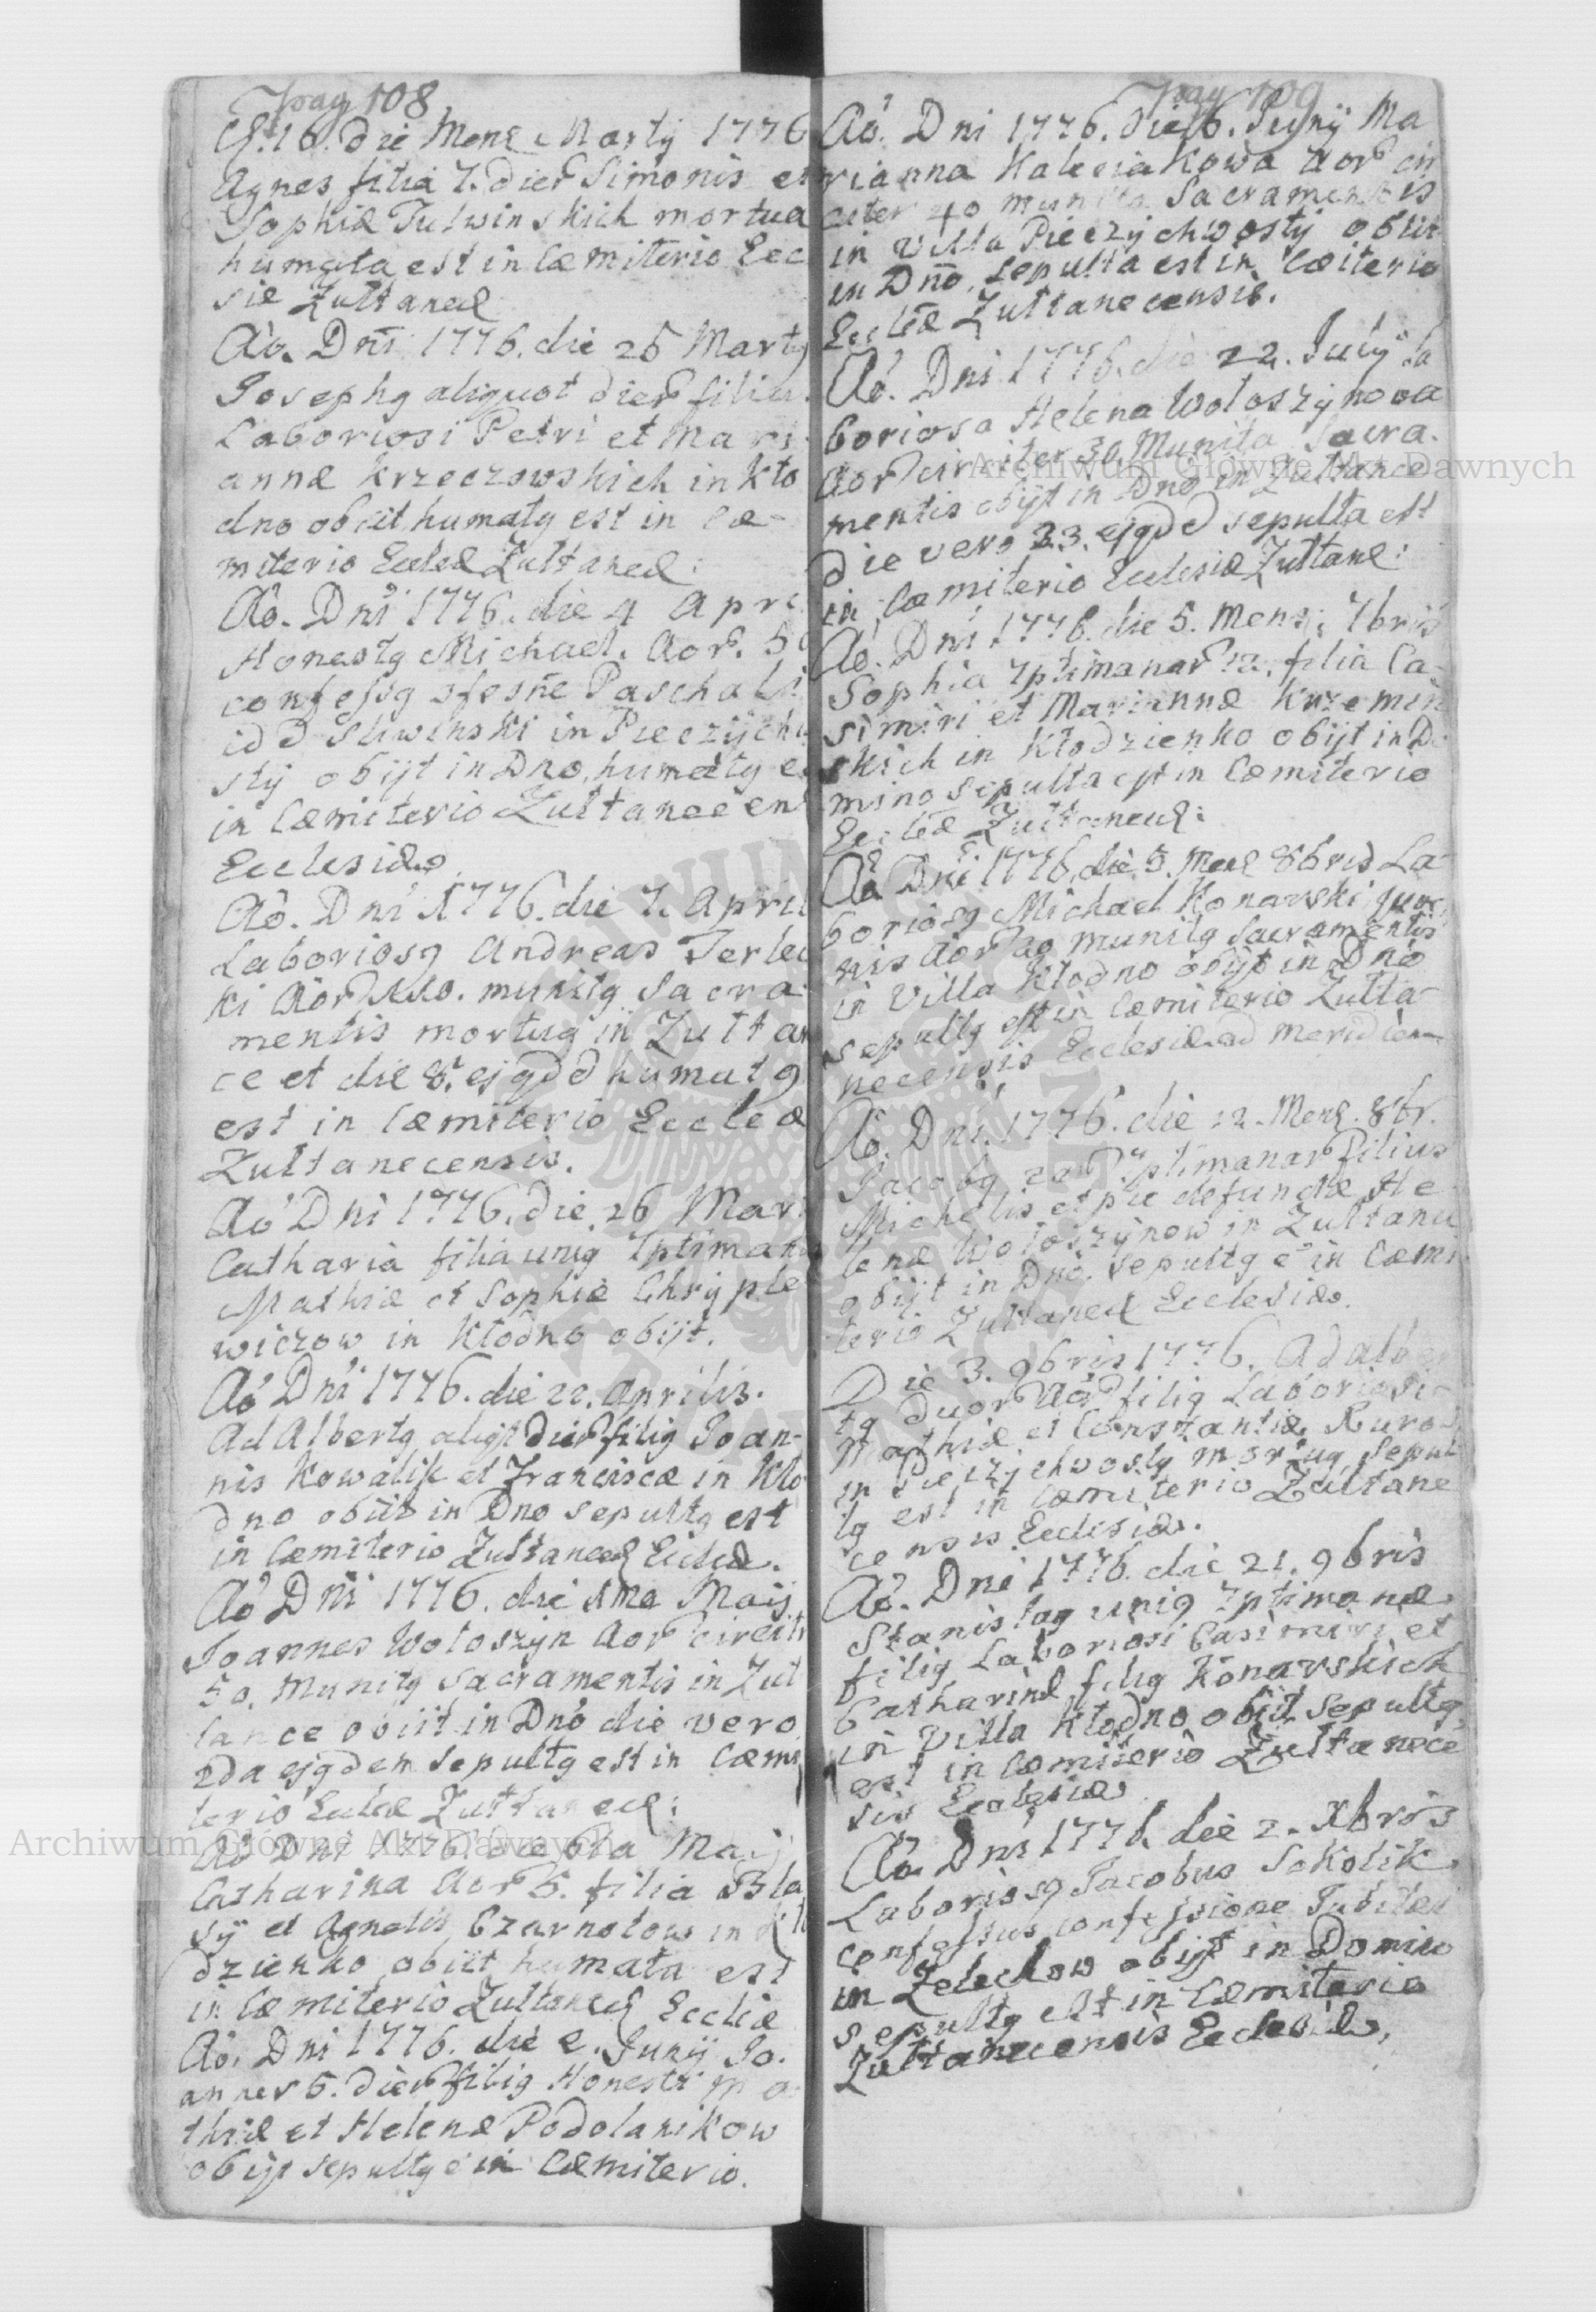 pag 108
Et 16. die Mens Martij 1776
Agnes filia 7. dier Simonis et
Sophiæ Tulwinskich mortua
humata est in Cæmiterio Eec
siæ Zultanec
Aô. Dni 1776. die 25 Martij
Joseph9 aliquot dier filiu
Laboriosi Petri et Mari
annæ Krzeczowskich in Kło
dno obiit humat9 est in Cæ-
miterio Eccleæ Zultanec:
Aô. Dni 1776. die 4 Apri
Honest9 Michael. Aor. 50
confess9 Paschali
idd Sliwinski in Pieczychw
sty obijt in Dno, humat9 es
in Cæmiterio Zultanecens
Ecclesiæ
Aô. Dni 1776. die 7. April
Laborios9 Andreas Terlec
ki Aor munit9 Sacra
mentis mortu9 in Zultan
ce et die 8. ej9dd humat9
est in Cæmiterio Eccleæ
Zultanecensis.
Aô Dni 1776. die 26 Mar
Catharia filia uni9 7ptimanæ
Mathiæ et Sophiæ Chryple
wiczow in Kłodno obijt.
Aô Dni 1776. die 22. Aprilis.
AdAlbert9 aliqt dier fili9 Joan-
nis Kowalik et Franciscæ in Kło
dno obiit in Dno sepult9 est
in Cæmiterio Zultanec Eccleæ.
Aô Dni 1776. die 1ma Maij
Joannes Wołoszyn Aor Circitr
50. Munit9 Sacramentis in Zul
tance obiit in Dno die vero
2da ej9dem sepult9 est in Cæmi
terio Eccleæ Zultanec:
Aô Dni 1776 die 6ta Maij
Catharina Aor 5. filia Bla
sij et Agnetis Czarnotow in Kło
dzienko obiit humata est
in Cæmiterio Zultanec Eccliæ
Aô. Dni 1776. die 2. Junij Jo.
annes 5. dier fili9 Honesti Ma
thiæ et Helenæ Podolanikow
obijt sepult9 e in Cæmiterio.
pag 109
Aô. Dni 1776. die 6. Junij Ma
rianna Kaleciakowa Aor cir
citer 40 munita Sacramentis
in Villa Pieczychwosty obiit
in Dno, sepulta est in Cæiterio
Eccleæ Zultanecensis.
Aô. Dni 1776. die 22. Julij La
boriosa Helena Wołoszynowa
Aor circiter 30. Munita Sacra.
mentis obijt in Dno in Zultance
die vero 23. ej9dd sepulta est
in Cæmiterio Ecclesiæ Zultane:
Aô. Dni 1776. die 5. Mens: 7bris
Sophia 7ptimanar 12. filia Ca-
simiri et Mariannæ Krzemin
skich in Kłodzienko obijt in Do
mino sepulta est in Cæmiterio
Eccleæ Zultanecs:
Aô Dni 1776. die 5. Mens 8bris La
borios9 Michael Konarski juve
nis Aor munit9 Sacramentis
in Villa Kłodno obijt in Dno
sepult9 est in Cæmiterio Zulta-
necensis Ecclesiæ ad meridiem
Aô. Dni. 1776. die 12. Mens. 8br.
Jacob9 7ptimanar Filius
Michælis et piæ defunctæ He
lenæ Wołoszynow in Zultance
obijt in Dno. Sepult9 e in Cæmi
terio Zultanec Ecclesiæ.
Die 3. 9bris 1776. Adalber
t9 duor Aor fili9 Laboriosi
Mathiæ et Constantiæ
in Pieczychwosty mortu9, Sepul
t9 est in Cæmiterio Zultane
censis Ecclesiæ.
Aô. Dni 1776. die 21. 9bris
Stanisla9 uni9 7ptimanæ
fili9 Laboriosi Casimiri et
Catharinæ fili9 Konarskich
in Villa Kłodno obiit Sepult9
est in Cæmiterio Zultanece
sis Ecclesiæ
Aô. Dni 1776. die 2. Xbris
Laborios9 Jacobus Sokolik
confessus confessione Jubilæi
in Zelechow obijt in Domino
sepult9 est in Cæmiterio
Zultanecensis Ecclesiæ.
Archiwum Główne Akt Dawnych
Archiwum Główne Akt Dawnych